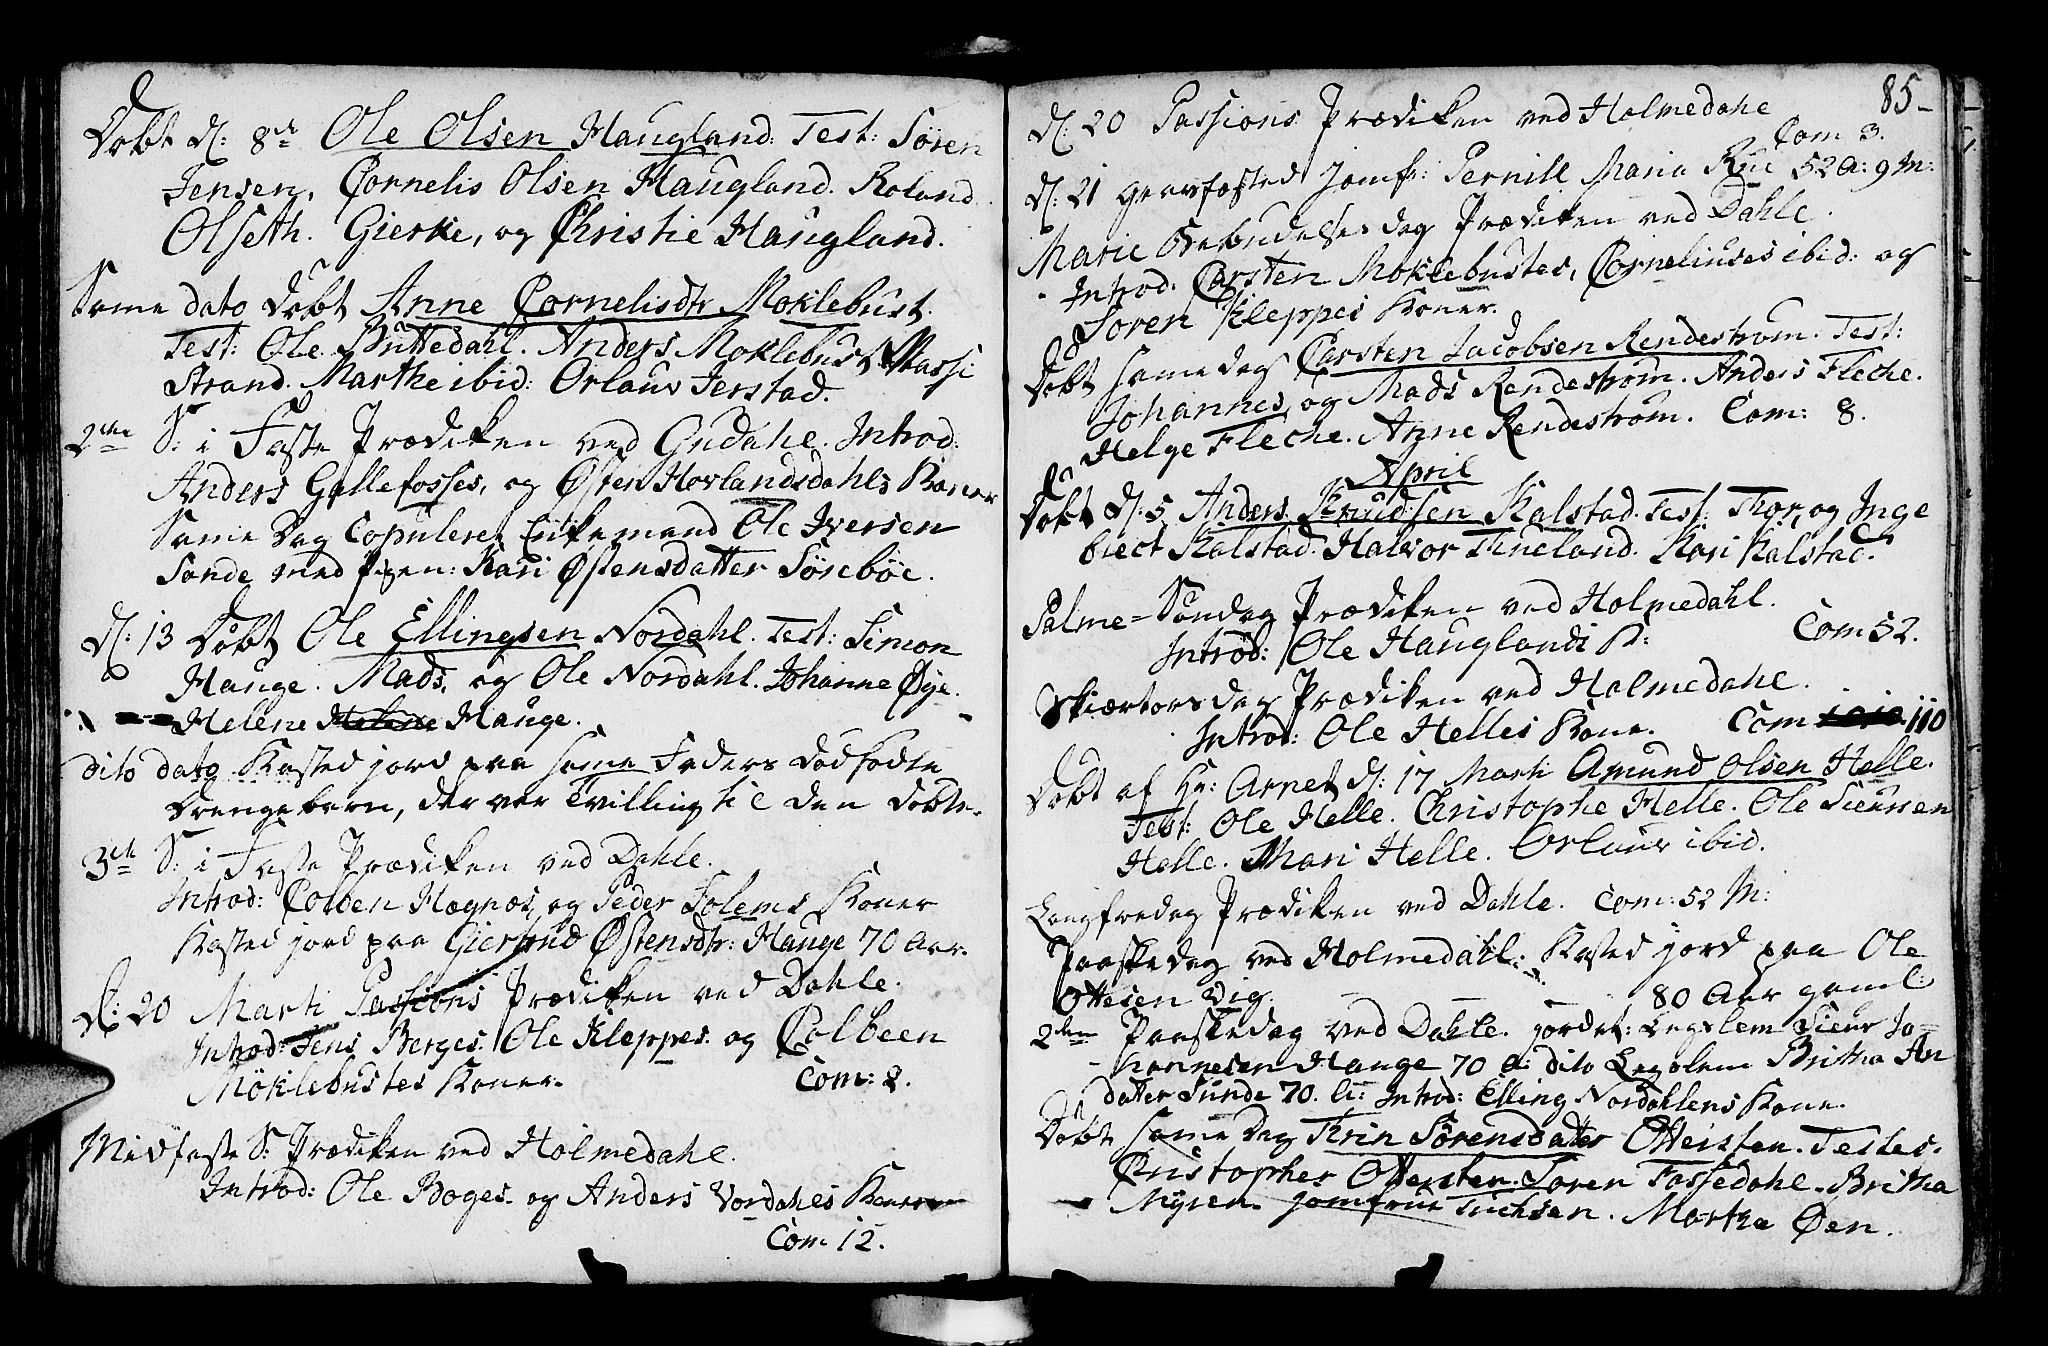 Døbt d: 8de Ole Olsen Haugland. Test: Sören
Jensen, Cornelis Olsen Haugland. Roland
Olseth. Gierke, og Christie Haugland.
Same dato Døbt Anne Cornelisdtr Moklebust.
Test: Ole Buttedahl. Anders Moklebust
Strand. Marthe ibid: Orlauv Jerstad.
2den S: i Faste Prædiken ved Gudahl. Introd:
Anders Gallefosses, og Østen Hovlandsdahls Koner
Same Dag Copuleret Enkemand Ole Iversen
Sande med Pigen: Kari Østensdatter Söreböe.
d: 13 Døbt Ole Ellingsen Nordahl. Test: Simon
Hauge. Mads, og Ole Nordahl. Johanne Øye.
Helene Hauge.
dito dato Kasted jord paa same Faders dødfødte
Drengebarn, der var Tvilling til den døbte.
3de S: i Faste Prædiken ved Dahle.
Introd: Colben Hægnøs, og Peder Solems Koner
Kasted jord paa Giertrud Østensdtr: Hauge 70 Aar.
d: 20 Marti Passions Prædiken ved Dahle.
Introd: Jens Berges. Ole Kleppes. og Colbeen
Möklebustes Koner. Com: 2.
Midfaste S: Prædiken ved Holmedahl.
Introd: Ole Boges. og Anders Vordahls Koner
Com 12.
85
d: 20 Passions Prædiken ved Holmedahl
Com 3.
d: 21 gravfæsted Jomfr: Pernill Maria 52 A: 9 M:
Marie Bebudelses dag Prædiken ved Dahle.
Introd: Carsten Moklebustes, Corneliuses ibid: og
Soren Kleppes Koner.
Døbt same dag Carsten Jacobsen Rendestrøm. Test:
Johannes, og Mads Rendestrøm. Anders Fleche.
Helge Fleche. Anne Rendestrøm. Com: 8.
April
Døbt d: 5 Anders Knudsen Kalstad. Test: Thor, og Inge
biect Kalstad. Halvor Tineland. Kari Kalstad.
Palme=Søndag Prædiken ved Holmedahl.
Introd: Ole Hauglands K: Com 52.
Skiærtorsdag Prædiken ved Holmedahl.
Introd: Ole Helles Kone. Com 110
Døbt af Hr: Arnet d: 17 Marti Amund Olsen Helle.
Test: Ole Helle. Christophe Helle. Ole Siurssen
Helle. Mari Helle. Orlauv ibid.
Langfredag Prædiken ved Dahle. Com: 52 M:
Paaskedag ved Holmedahl: Kasted jord paa Ole
Ottesen Vig. 80 Aar gaml:
2den Paaskedag ved Dahle. jordet: Legslem Siur Jo=
hannesen Hauge 70 A: dito Legslem Britha An
datter Sunde 70. Introd: Elling Nordahlens Kone.
Døbt same Dag Trin Sörensdatter Otteisten. Testes.
Christopher Otteisten. Soren Fossedahl. Britha
Myren. Jomfrue Tuchsen. Martha Øen.